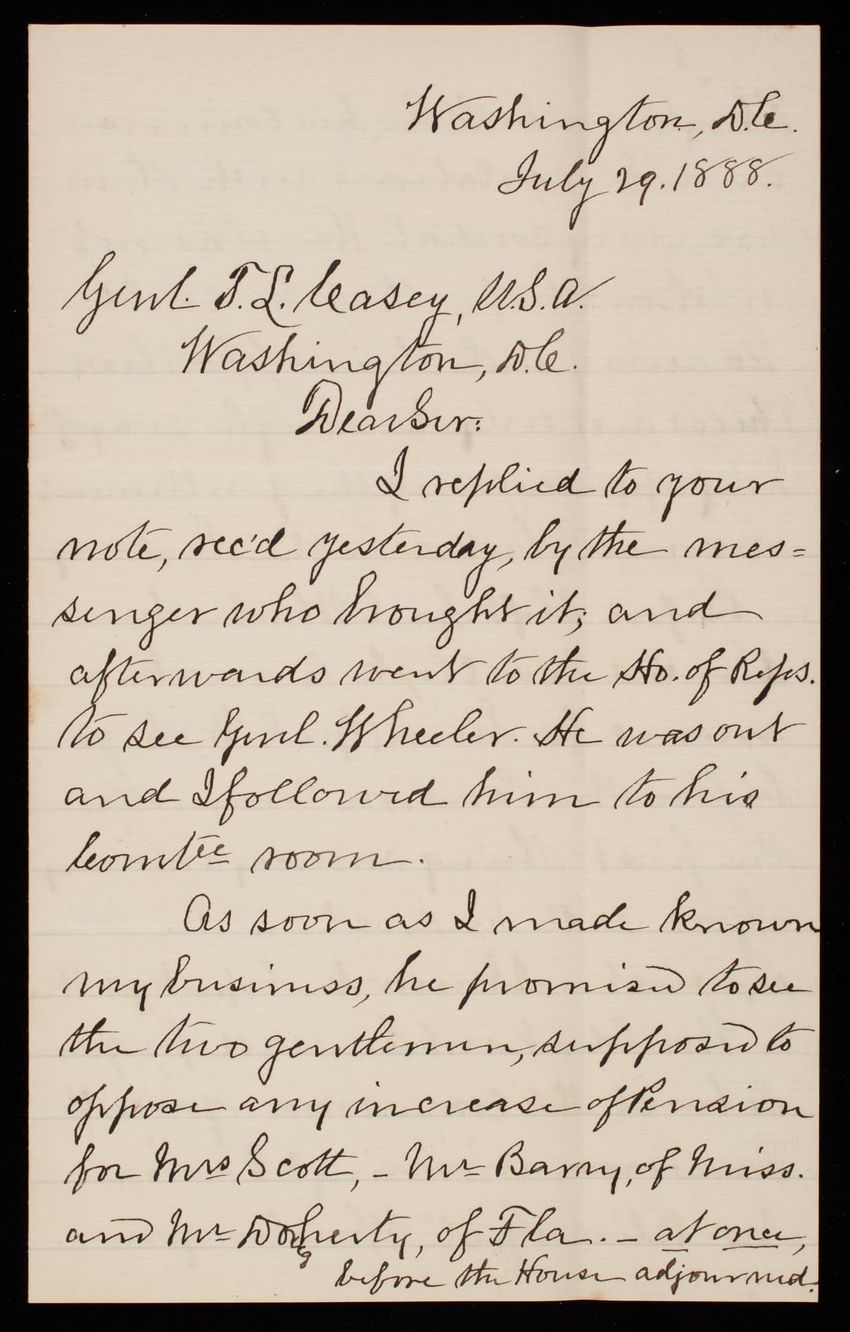 Washington, D.C.
July 29. 1888.
Genl. T. L. Casey, U.S.A.
Washington, D.C.
Dear Sir:
I replied to your
note, rec'd yesterday, by the mes=
senger who brought it; and
afterwards went to the Ho. of Reps.
to see Genl. Wheeler. He was out
and I followed him to his
Comtee room.
As soon as I made known
my business, he promised to see
the two gentlemen, supposed to
oppose any increase of Pension
for Mrs Scott, - Mr Barry, of Miss.
and Mr Dougherty, of Fla. - at once,
before the House adjourned.